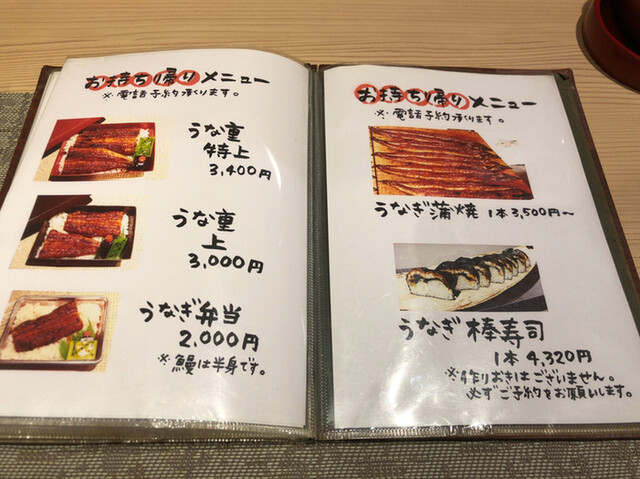 お持ち帰りメニュー
※電話予約承ります。
うな重
特上
3,400円
うな重
上
3,000円
うなぎ弁当
2,000円
※鰻は半身です。
お持ち帰りメニュー
※電話予約承ります。
うなぎ蒲焼 1本3,500円〜
うなぎ 棒寿司
1本 4,320円
※作りおきはございません。
必ずご予約をお願いします。